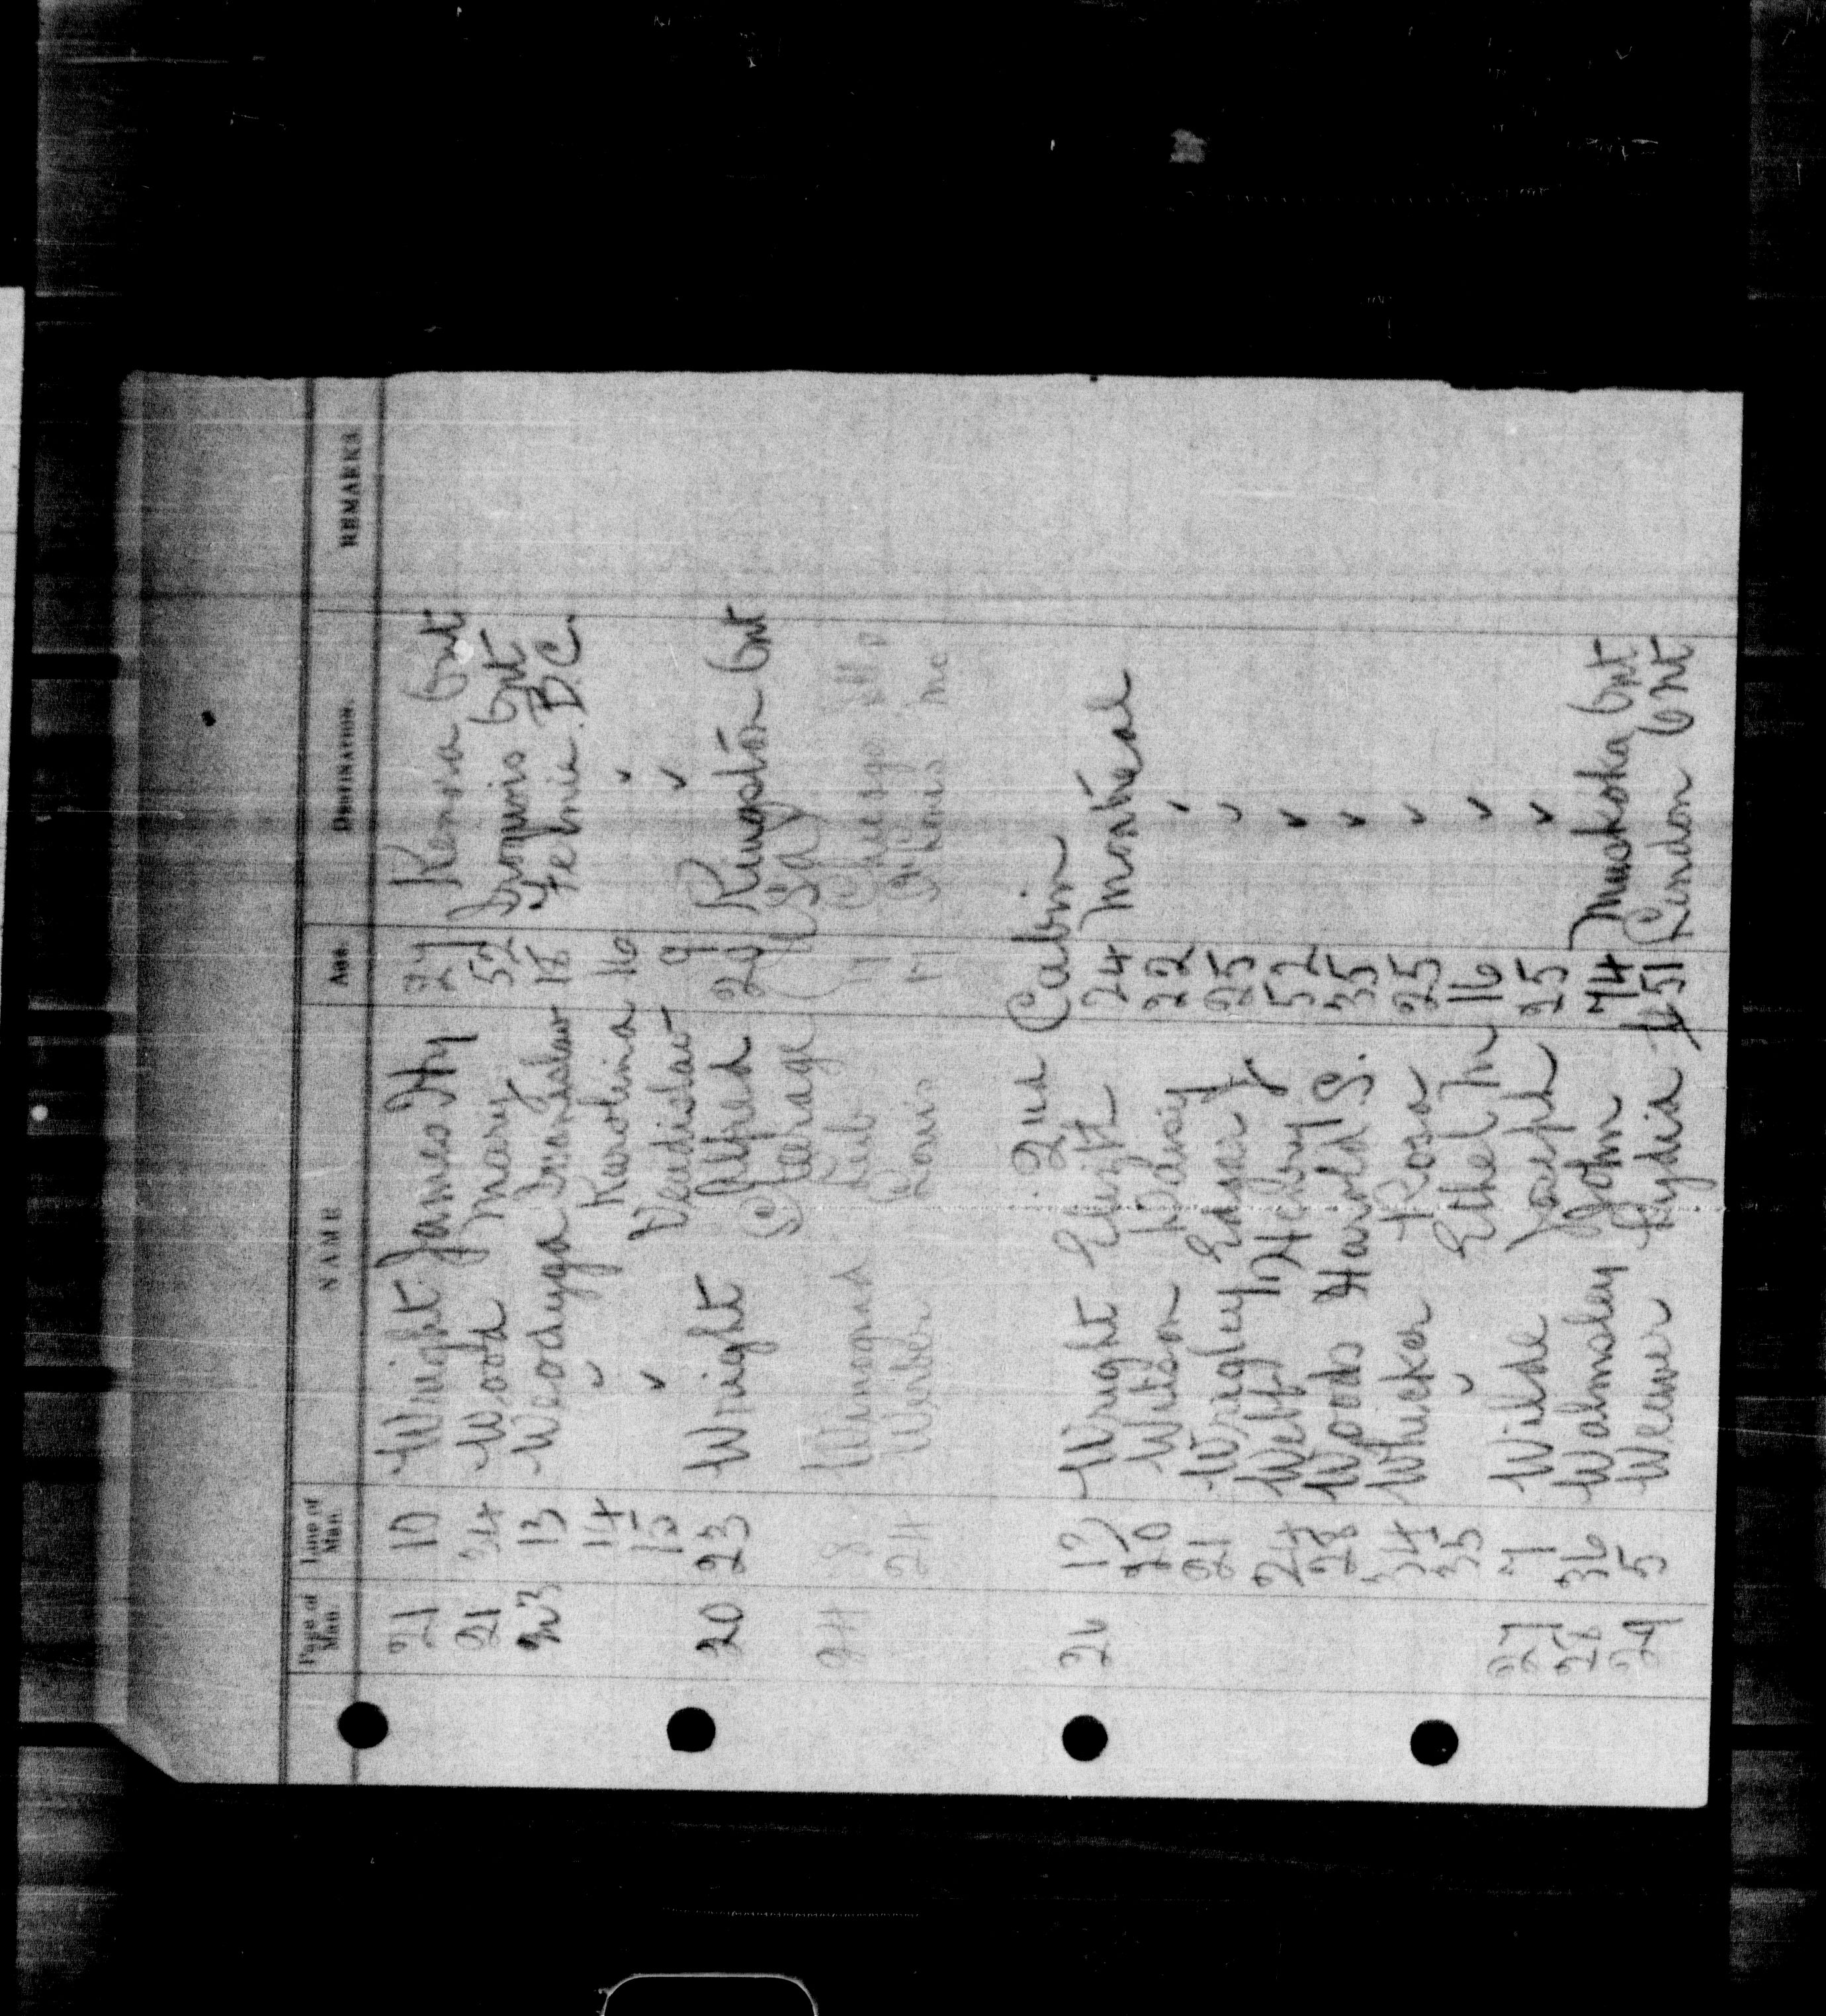 Page of Man. Line of Man. NAME AGE DESTINATION. REMARKS
21 10 Wright James Hy 27 Kenora Ont
21 24 Wood Mary 52 Iroquois Ont
23 13 Woodyga Bronislaw 18 Fernie B.C.
14 ✓ Karolina 16 ✓
15 ✓ Vladislaw 9 ✓
20 23 Wright Alfred 29 Kingston Ont
Steerage (USA)
24 8 Winograd Leib 17 Chicago Ill
24 Werber Louis 17 St Louis Mo
2nd Cabin
26 Wright 24 Montreal
20 Wilson Daisy 22 ✓
21 Wrigley Edgar J 25 ✓
24 Webb Henry 52 ✓
28 Woods Harold S. 35 ✓
34 Whicker Rosa 25 ✓
35 ✓ Ethel M 16 ✓
27 7 Wilde Joseph 25 ✓
28 36 Walmsley John 74 Muskoka Ont
29 5 Weaver Lydia 51 London Ont